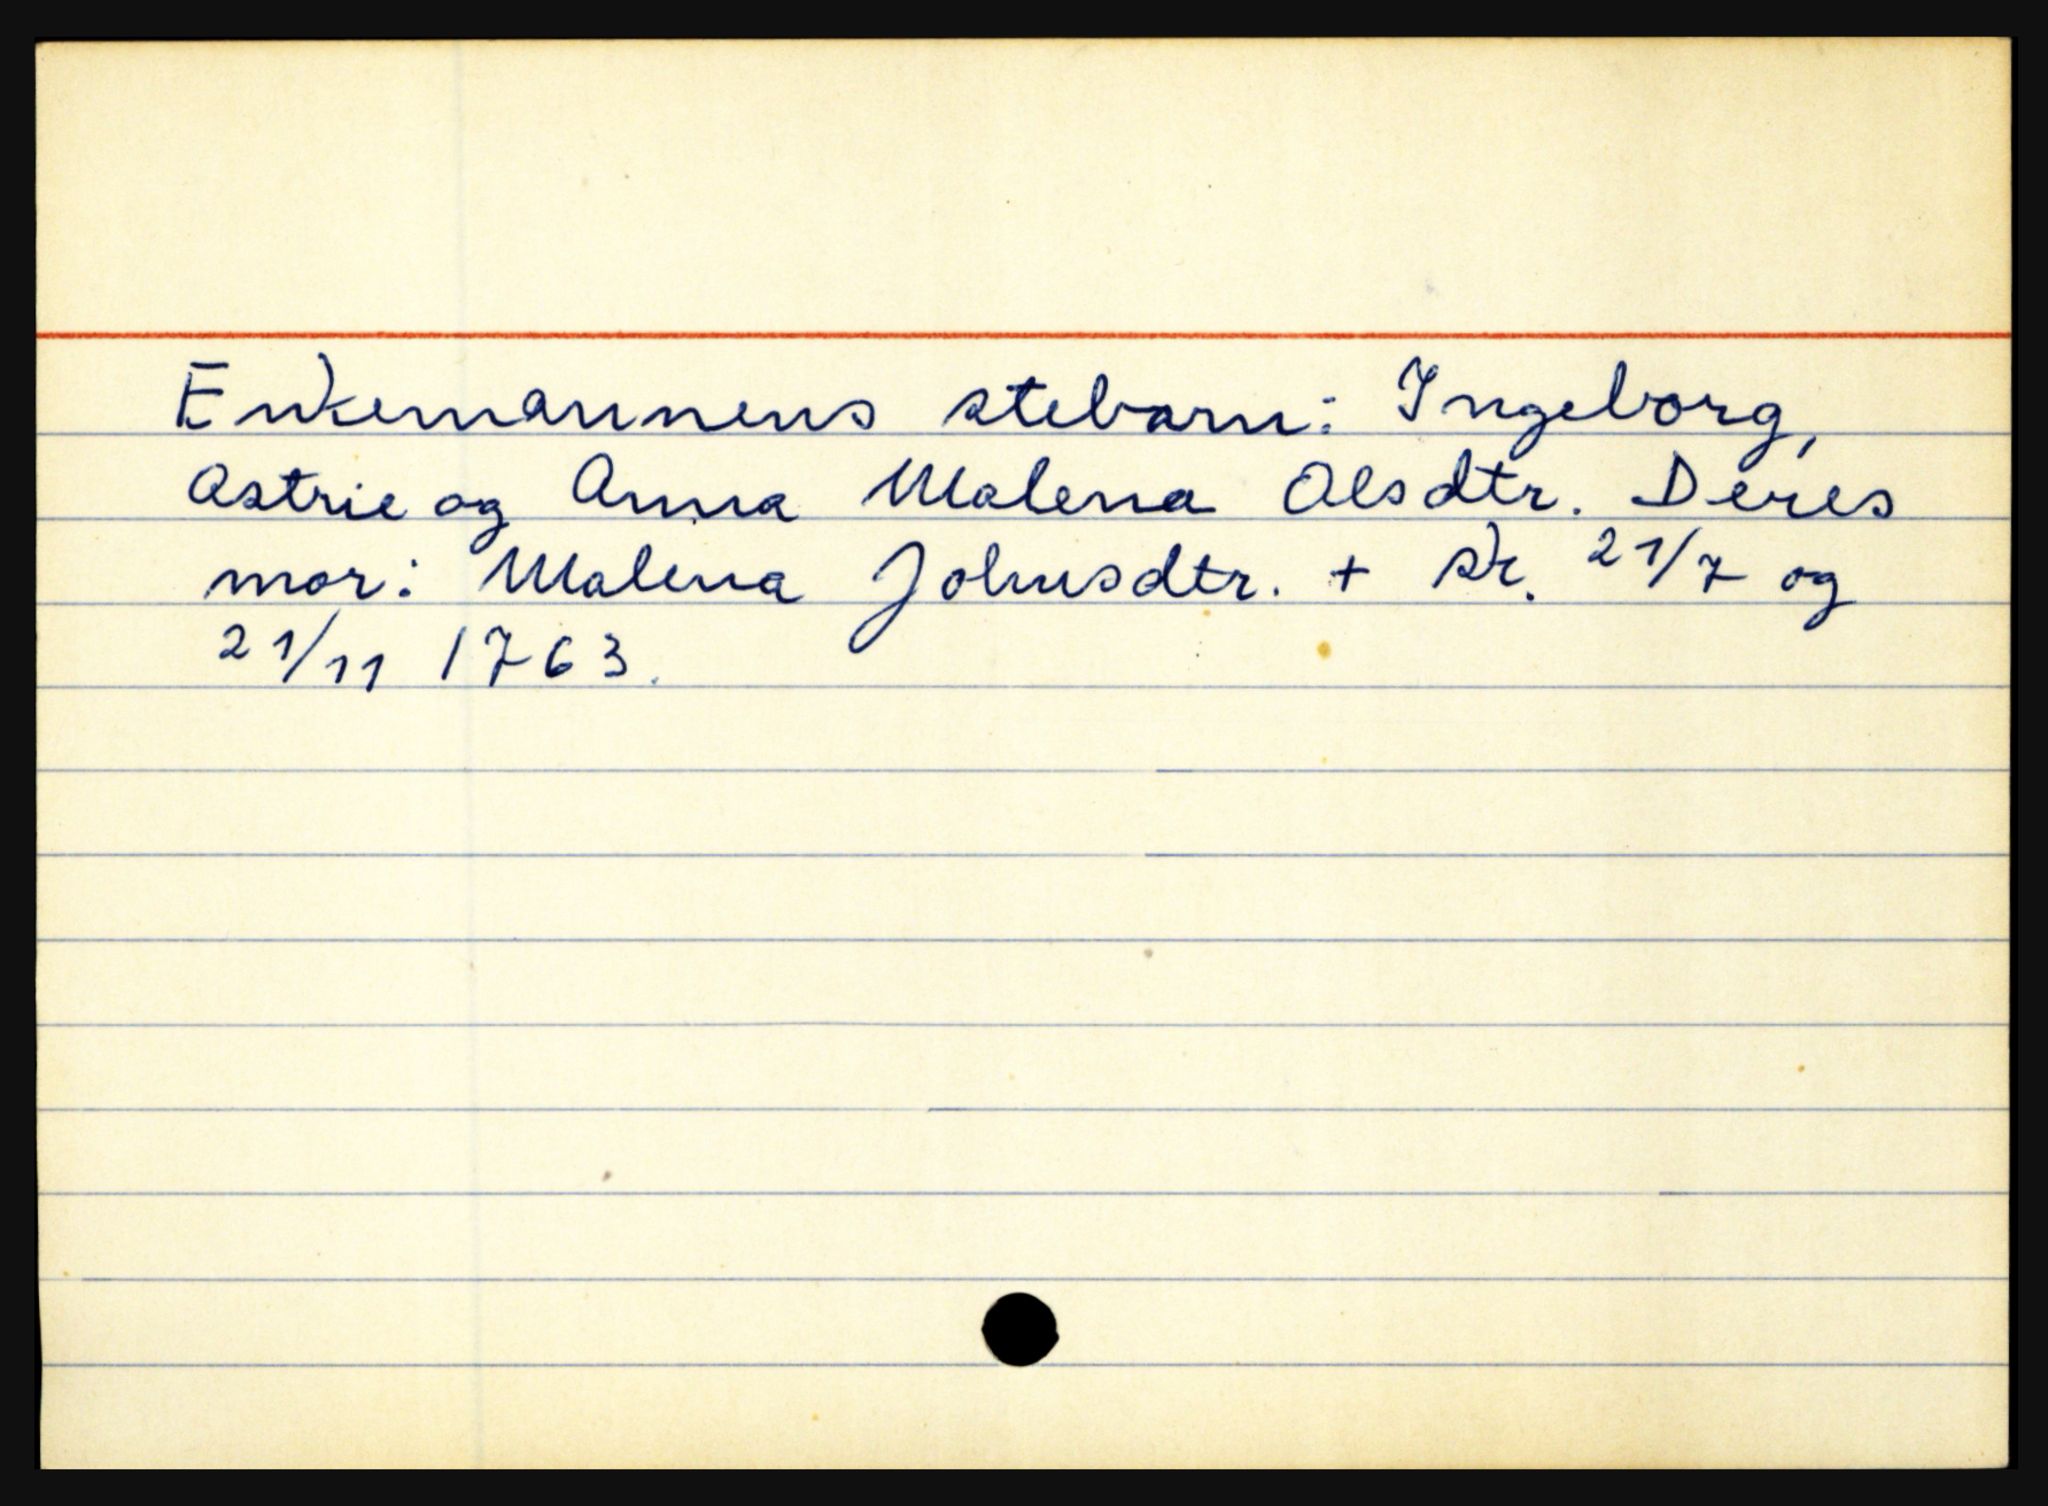 Enkemannens stebarn: Ingeborg,
Astrie og Anna Malena Olsdtr. Deres
mor: Malena Johnsdtr. + sk. 21/7 og
21/11 1763.